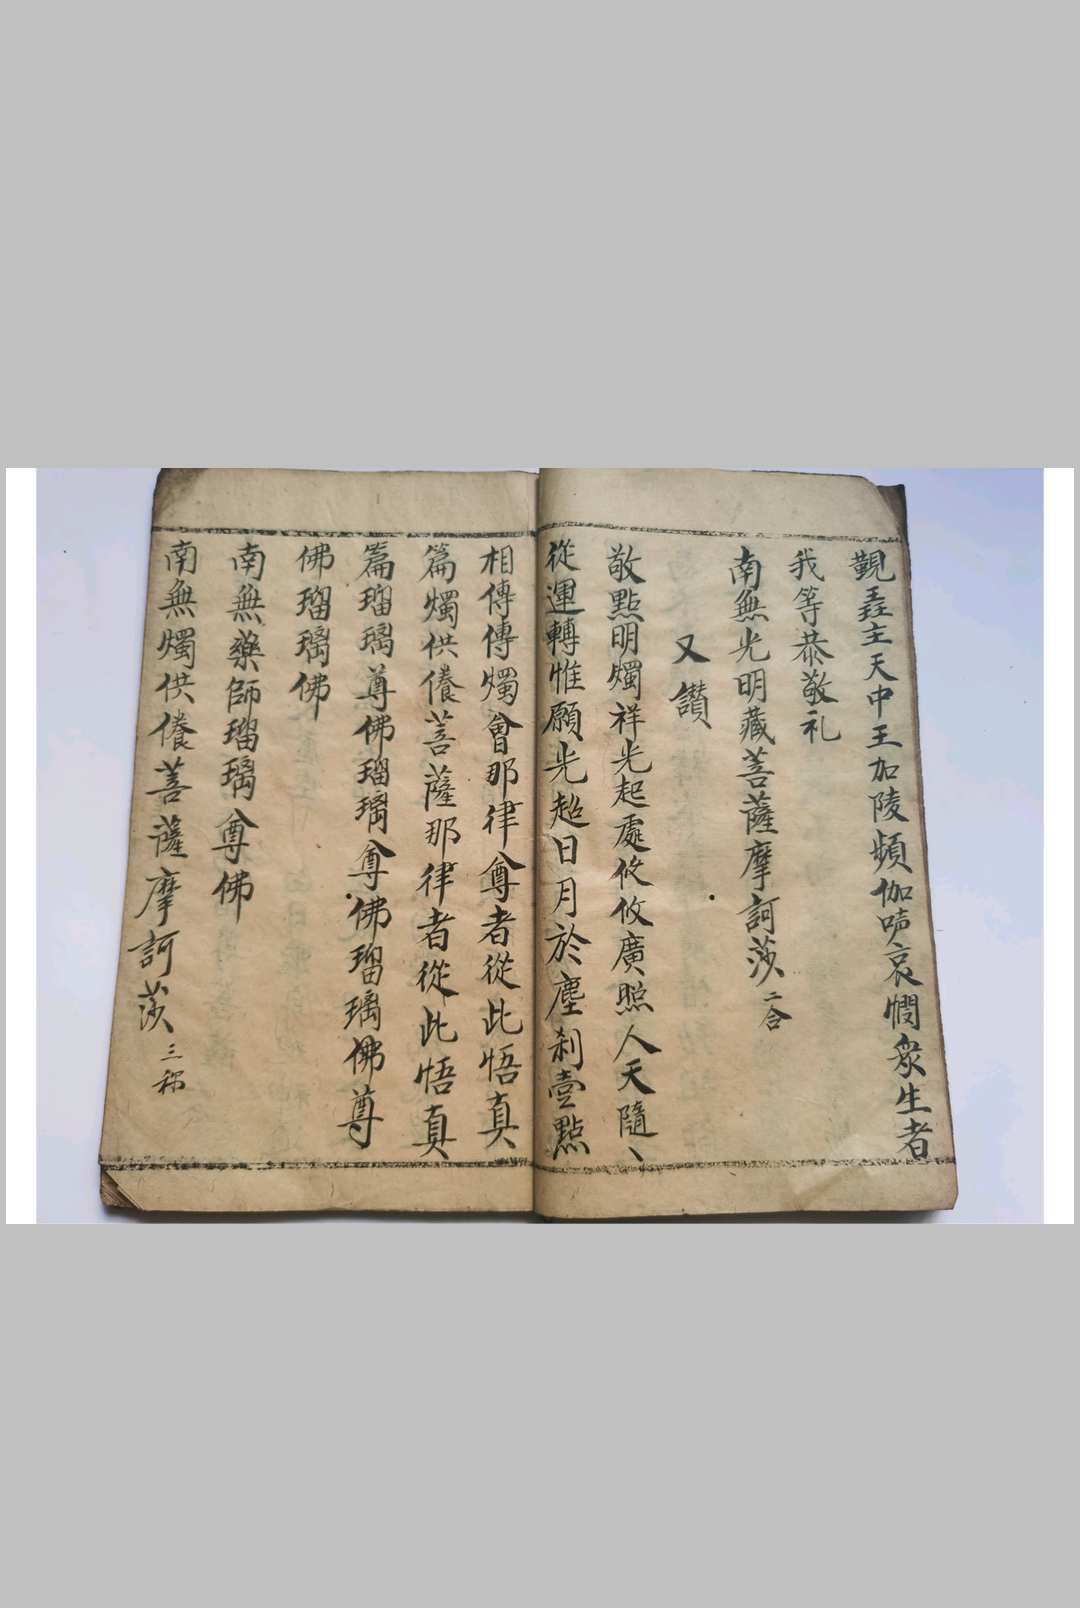 觀𦱳主天中王加陵頻伽哢哀憫衆生者
我等恭敬礼
南無光明藏菩薩摩訶莎二合
又讃
敬點明燭祥光起處攸攸廣照人天隨、
從運轉惟願光超日月於塵剎壹點
相傳傳燭會那律尊者從此悟真
篇燭供養菩薩那律者從此悟真
篇瑠璃尊佛瑠璃尊佛瑠璃佛尊
佛瑠璃佛
南無藥師瑠璃尊佛
南無燭供養菩薩摩訶莎三称